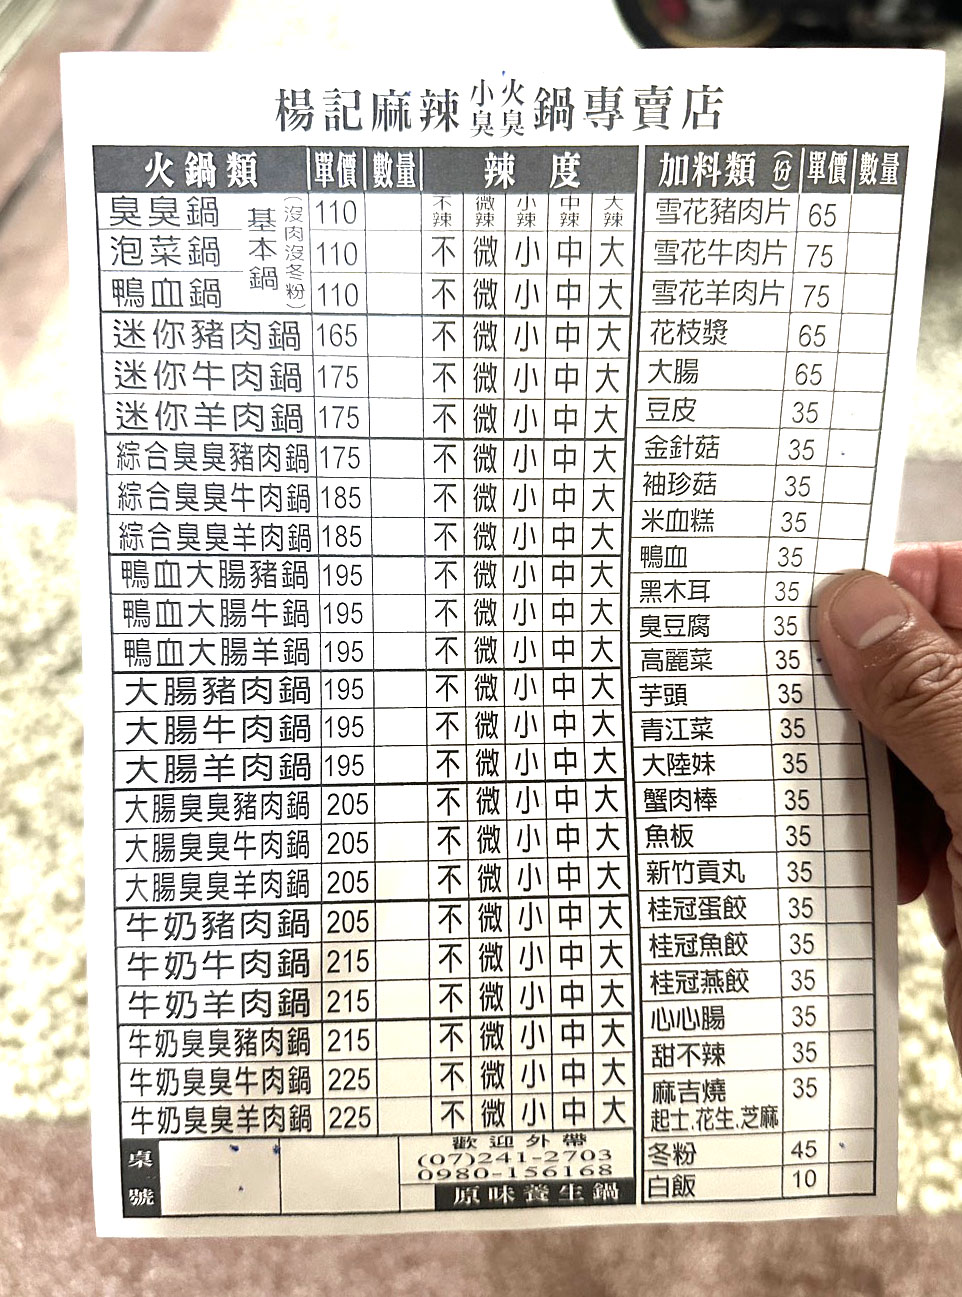 楊記麻辣小火臭臭鍋專賣店
火鍋類 單價 數量 辣度
臭臭鍋 基本鍋(沒肉沒冬粉) 110 不辣 微辣 小辣 中辣 大辣
泡菜鍋 110 不 微 小 中 大
鴨血鍋 110 不 微 小 中 大
迷你豬肉鍋 165 不 微 小 中 大
迷你牛肉鍋 175 不 微 小 中 大
迷你羊肉鍋 175 不 微 小 中 大
綜合臭臭豬肉鍋 175 不 微 小 中 大
綜合臭臭牛肉鍋 185 不 微 小 中 大
綜合臭臭羊肉鍋 185 不 微 小 中 大
鴨血大腸豬鍋 195 不 微 小 中 大
鴨血大腸牛鍋 195 不 微 小 中 大
鴨血大腸羊鍋 195 不 微 小 中 大
大腸豬肉鍋 195 不 微 小 中 大
大腸牛肉鍋 195 不 微 小 中 大
大腸羊肉鍋 195 不 微 小 中 大
大腸臭臭豬肉鍋 205 不 微 小 中 大
大腸臭臭牛肉鍋 205 不 微 小 中 大
大腸臭臭羊肉鍋 205 不 微 小 中 大
牛奶豬肉鍋 205 不 微 小 中 大
牛奶牛肉鍋 215 不 微 小 中 大
牛奶羊肉鍋 215 不 微 小 中 大
牛奶臭臭豬肉鍋 215 不 微 小 中 大
牛奶臭臭牛肉鍋 225 不 微 小 中 大
牛奶臭臭羊肉鍋 225 不 微 小 中 大
桌號
歡迎外帶
(07)241-2703
0980-156168
原味養生鍋
加料類(份) 單價 數量
雪花豬肉片 65
雪花牛肉片 75
雪花羊肉片 75
花枝漿 65
大腸 65
豆皮 35
金針菇 35
袖珍菇 35
米血糕 35
鴨血 35
黑木耳 35
臭豆腐 35
高麗菜 35
芋頭 35
青江菜 35
大陸妹 35
蟹肉棒 35
魚板 35
新竹貢丸 35
桂冠蛋餃 35
桂冠魚餃 35
桂冠燕餃 35
心心腸 35
甜不辣 35
麻吉燒 35
起士.花生.芝麻
冬粉 45
白飯 10